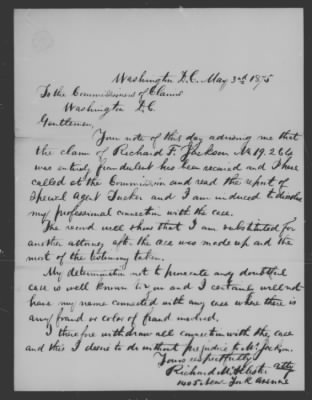 Washington D.C. May 3rd 1875
To the Commissioners of Claims
Washington D.C.
Gentlemen,
Your note of this day advising me that
the claim of Richard F. Jackson No 19.266
was entirely fraudulent has been received and I have
called at the Commission and read the report of
Special Agent Tucker and I am induced to dissolve
my professional connection with the case.
The record will show that I am substituted for
another attorney after the case was made up and the
most of the testimony taken.
My determination not to prosecute any doubtful
case is well known to you and I certainly will not
have my name connected with any case where there is
any fraud or color of fraud involved.
I therefore withdraw all connection with the case
and this I desire to do without prejudice to Mr. Jackson.
Yours respectfully
Richard McAllister Atty
1405 New York Avenue